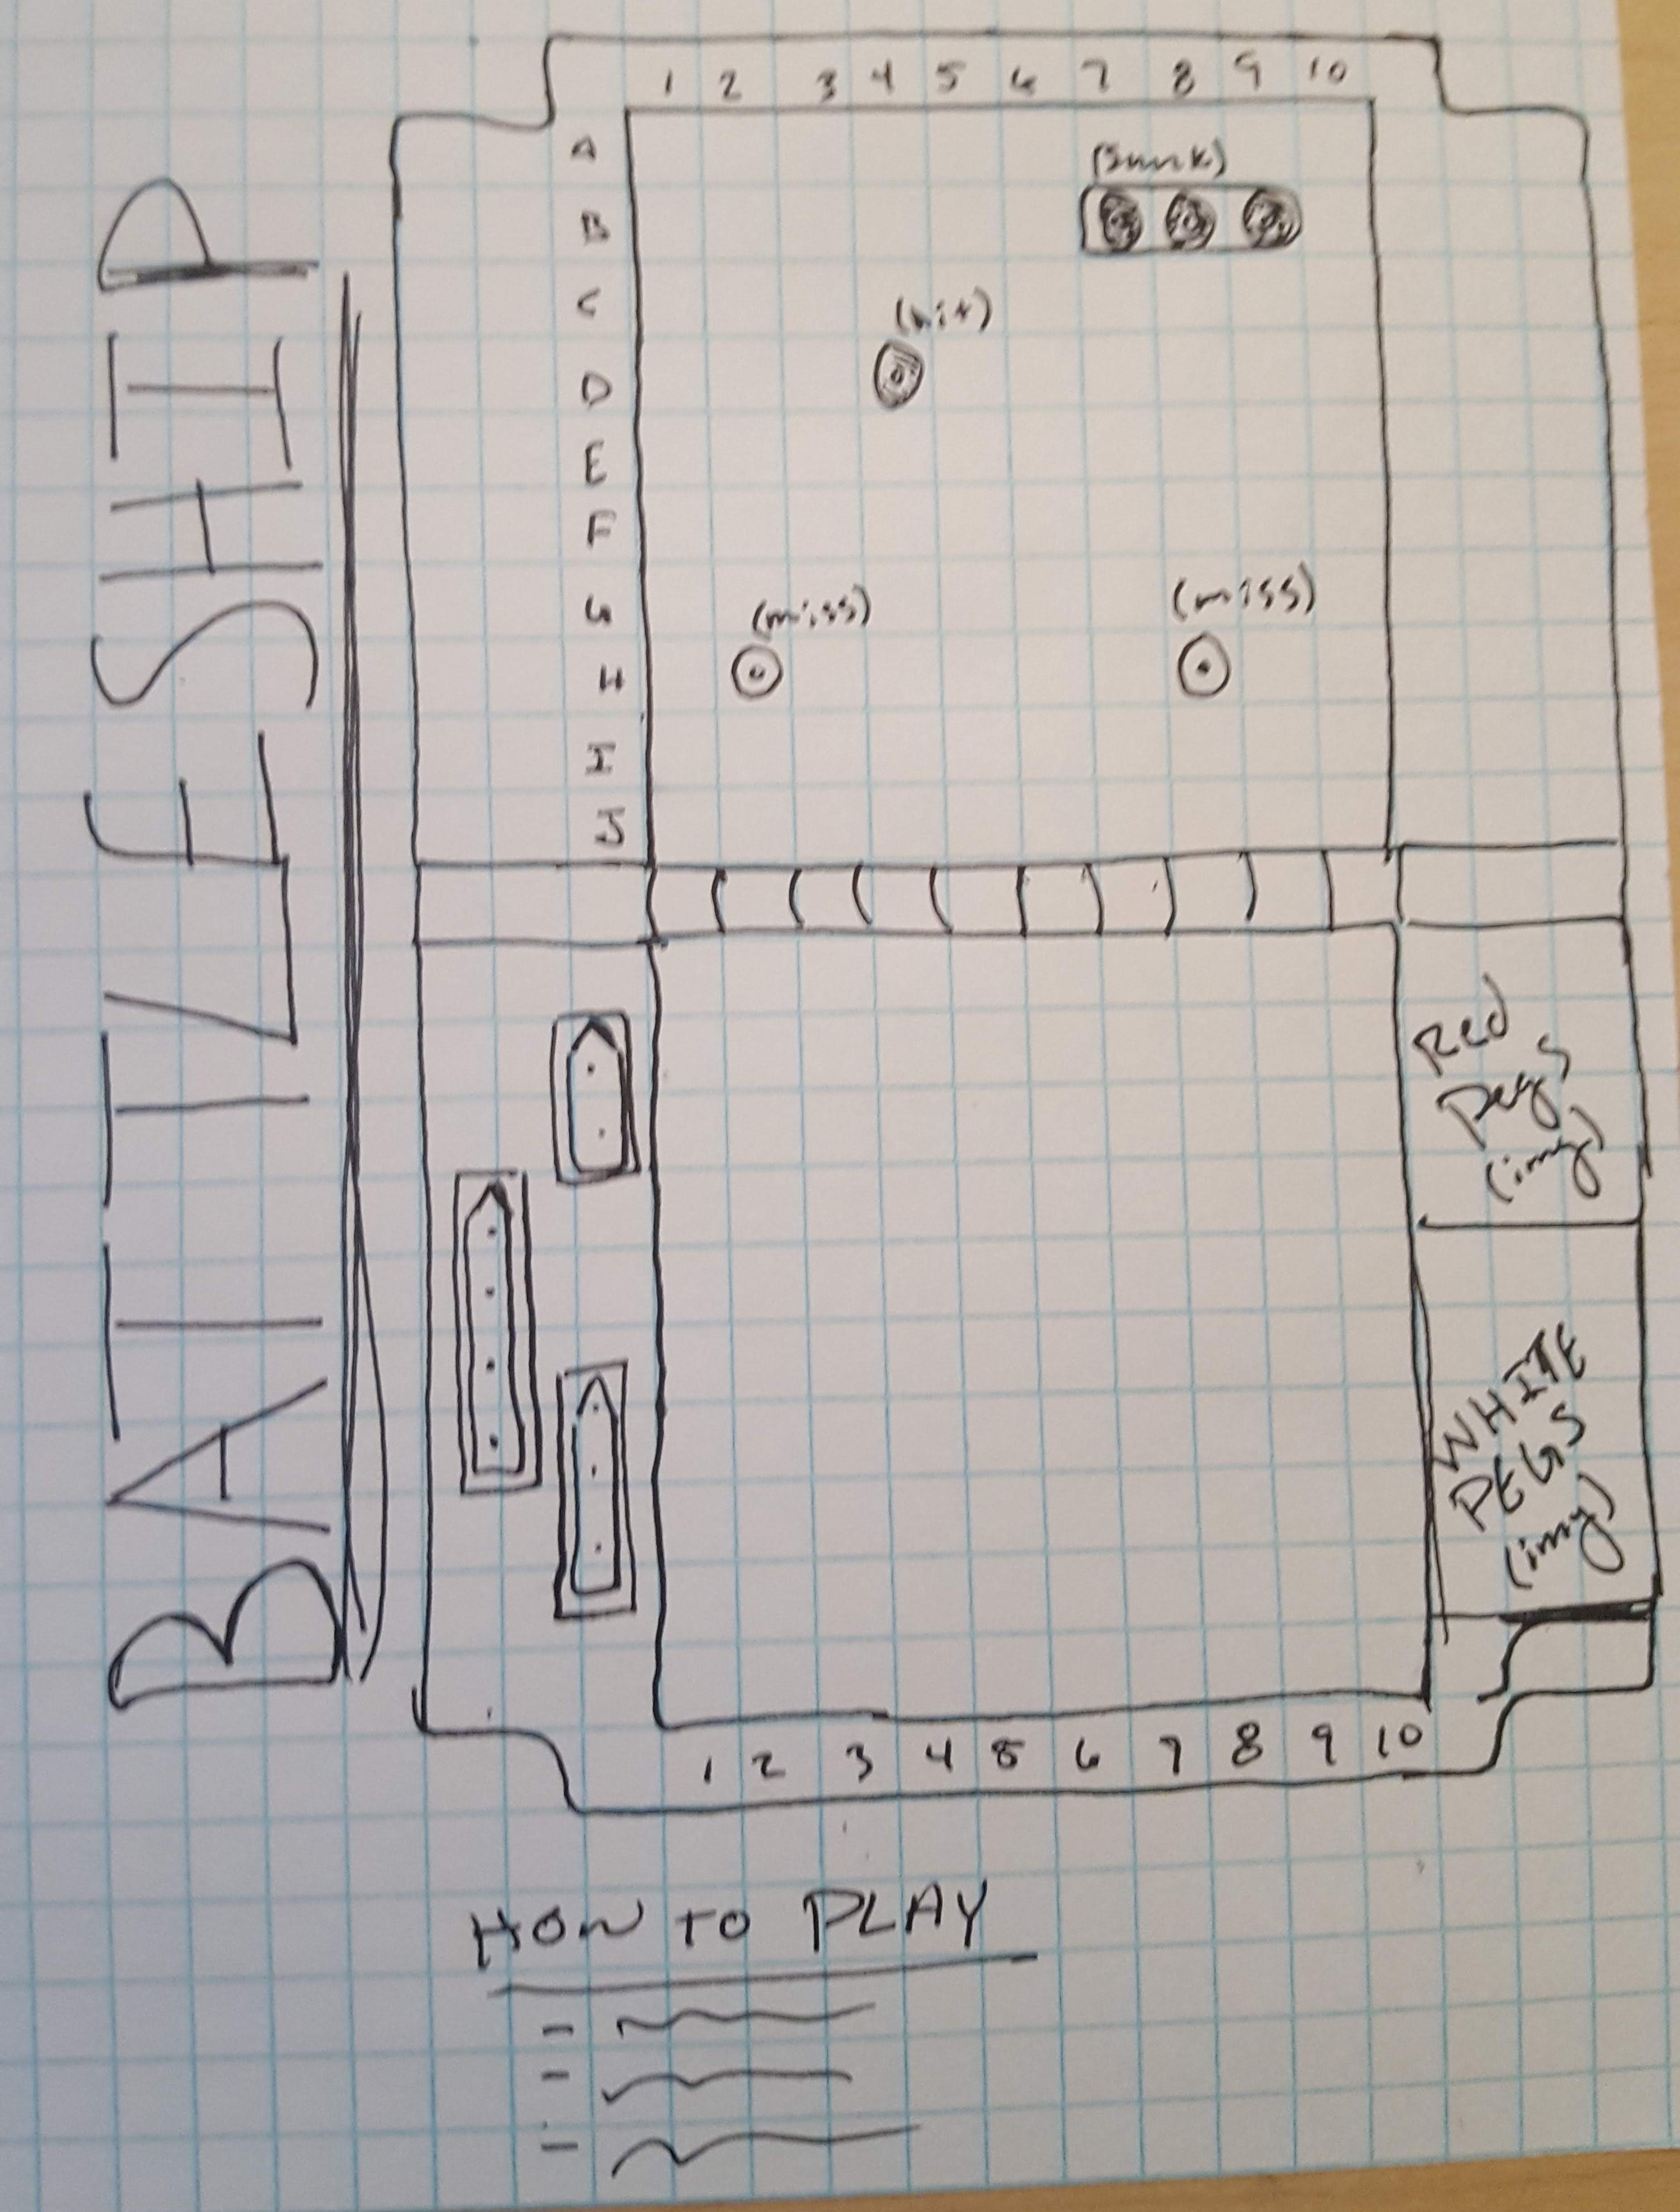 BATTLESHIP
1 2 3 4 5 6 7 8 9 10
A
(Sunk)
B
C
(hit)
D
E
F
G
(miss) (miss)
H
I
J
Red
Pegs
(img)
WHITE
PEGS
(img)
1 2 3 4 5 6 7 8 9 10
HOW TO PLAY